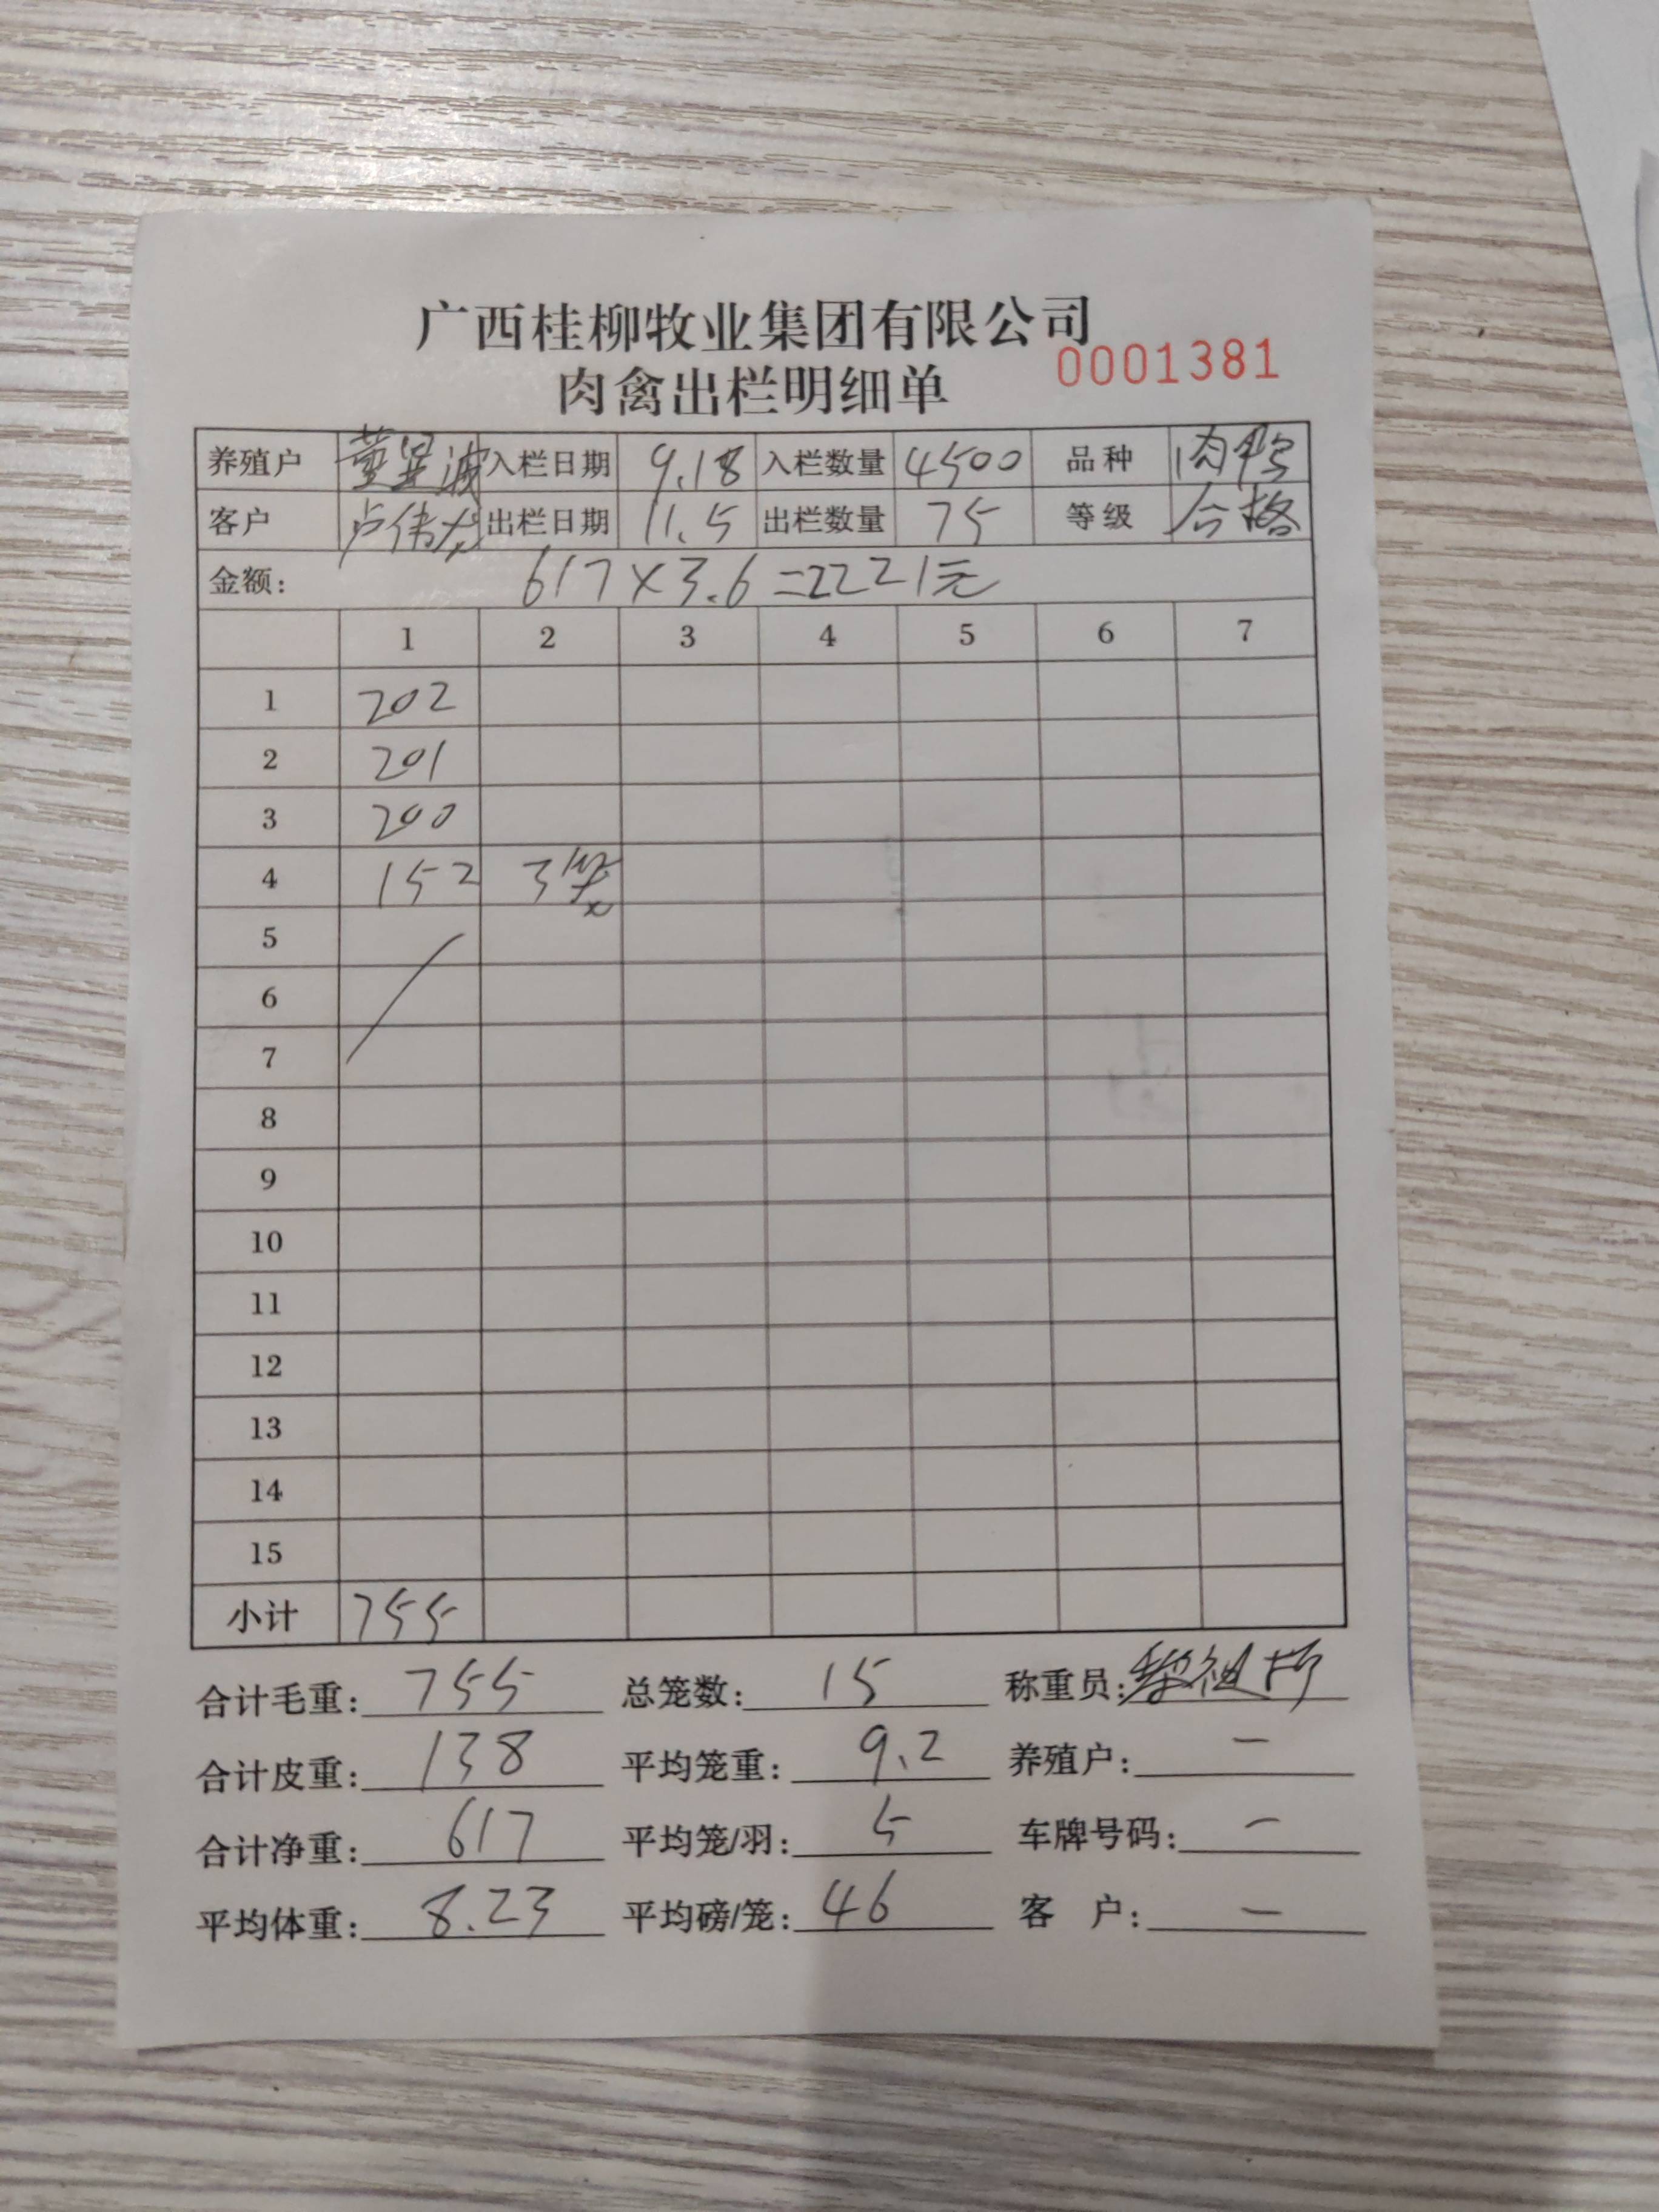 广西桂柳牧业集团有限公司
肉禽出栏明细单 0001381
养殖户 入栏日期 9.18 入栏数量 4500 品种 肉鸭
客户 卢伟 出栏日期 11.5 出栏数量 75 等级 合格
金额: 617×3.6=2221元
1 2 3 4 5 6 7
1 202
2 201
3 200
4 152 3笼
5
6
7
8
9
10
11
12
13
14
15
小计 755
合计毛重: 755 总笼数: 15 称重员:
合计皮重: 138 平均笼重: 9.2 养殖户: —
合计净重: 617 平均笼/羽: 5 车牌号码: —
平均体重: 8.23 平均磅/笼: 46 客 户: —